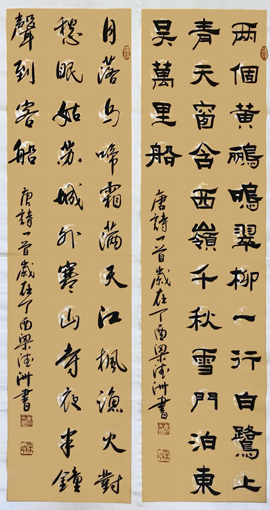 兩個黃鸝鳴翠柳一行白鷺上
青天窗含西嶺千秋雪門泊東
吳萬里船
唐詩一首歲在丁酉梁洲書
月落烏啼霜滿天江楓漁火對
愁眠姑蘇城外寒山寺夜半鐘
聲到客船
唐詩一首歲在丁酉梁洲書